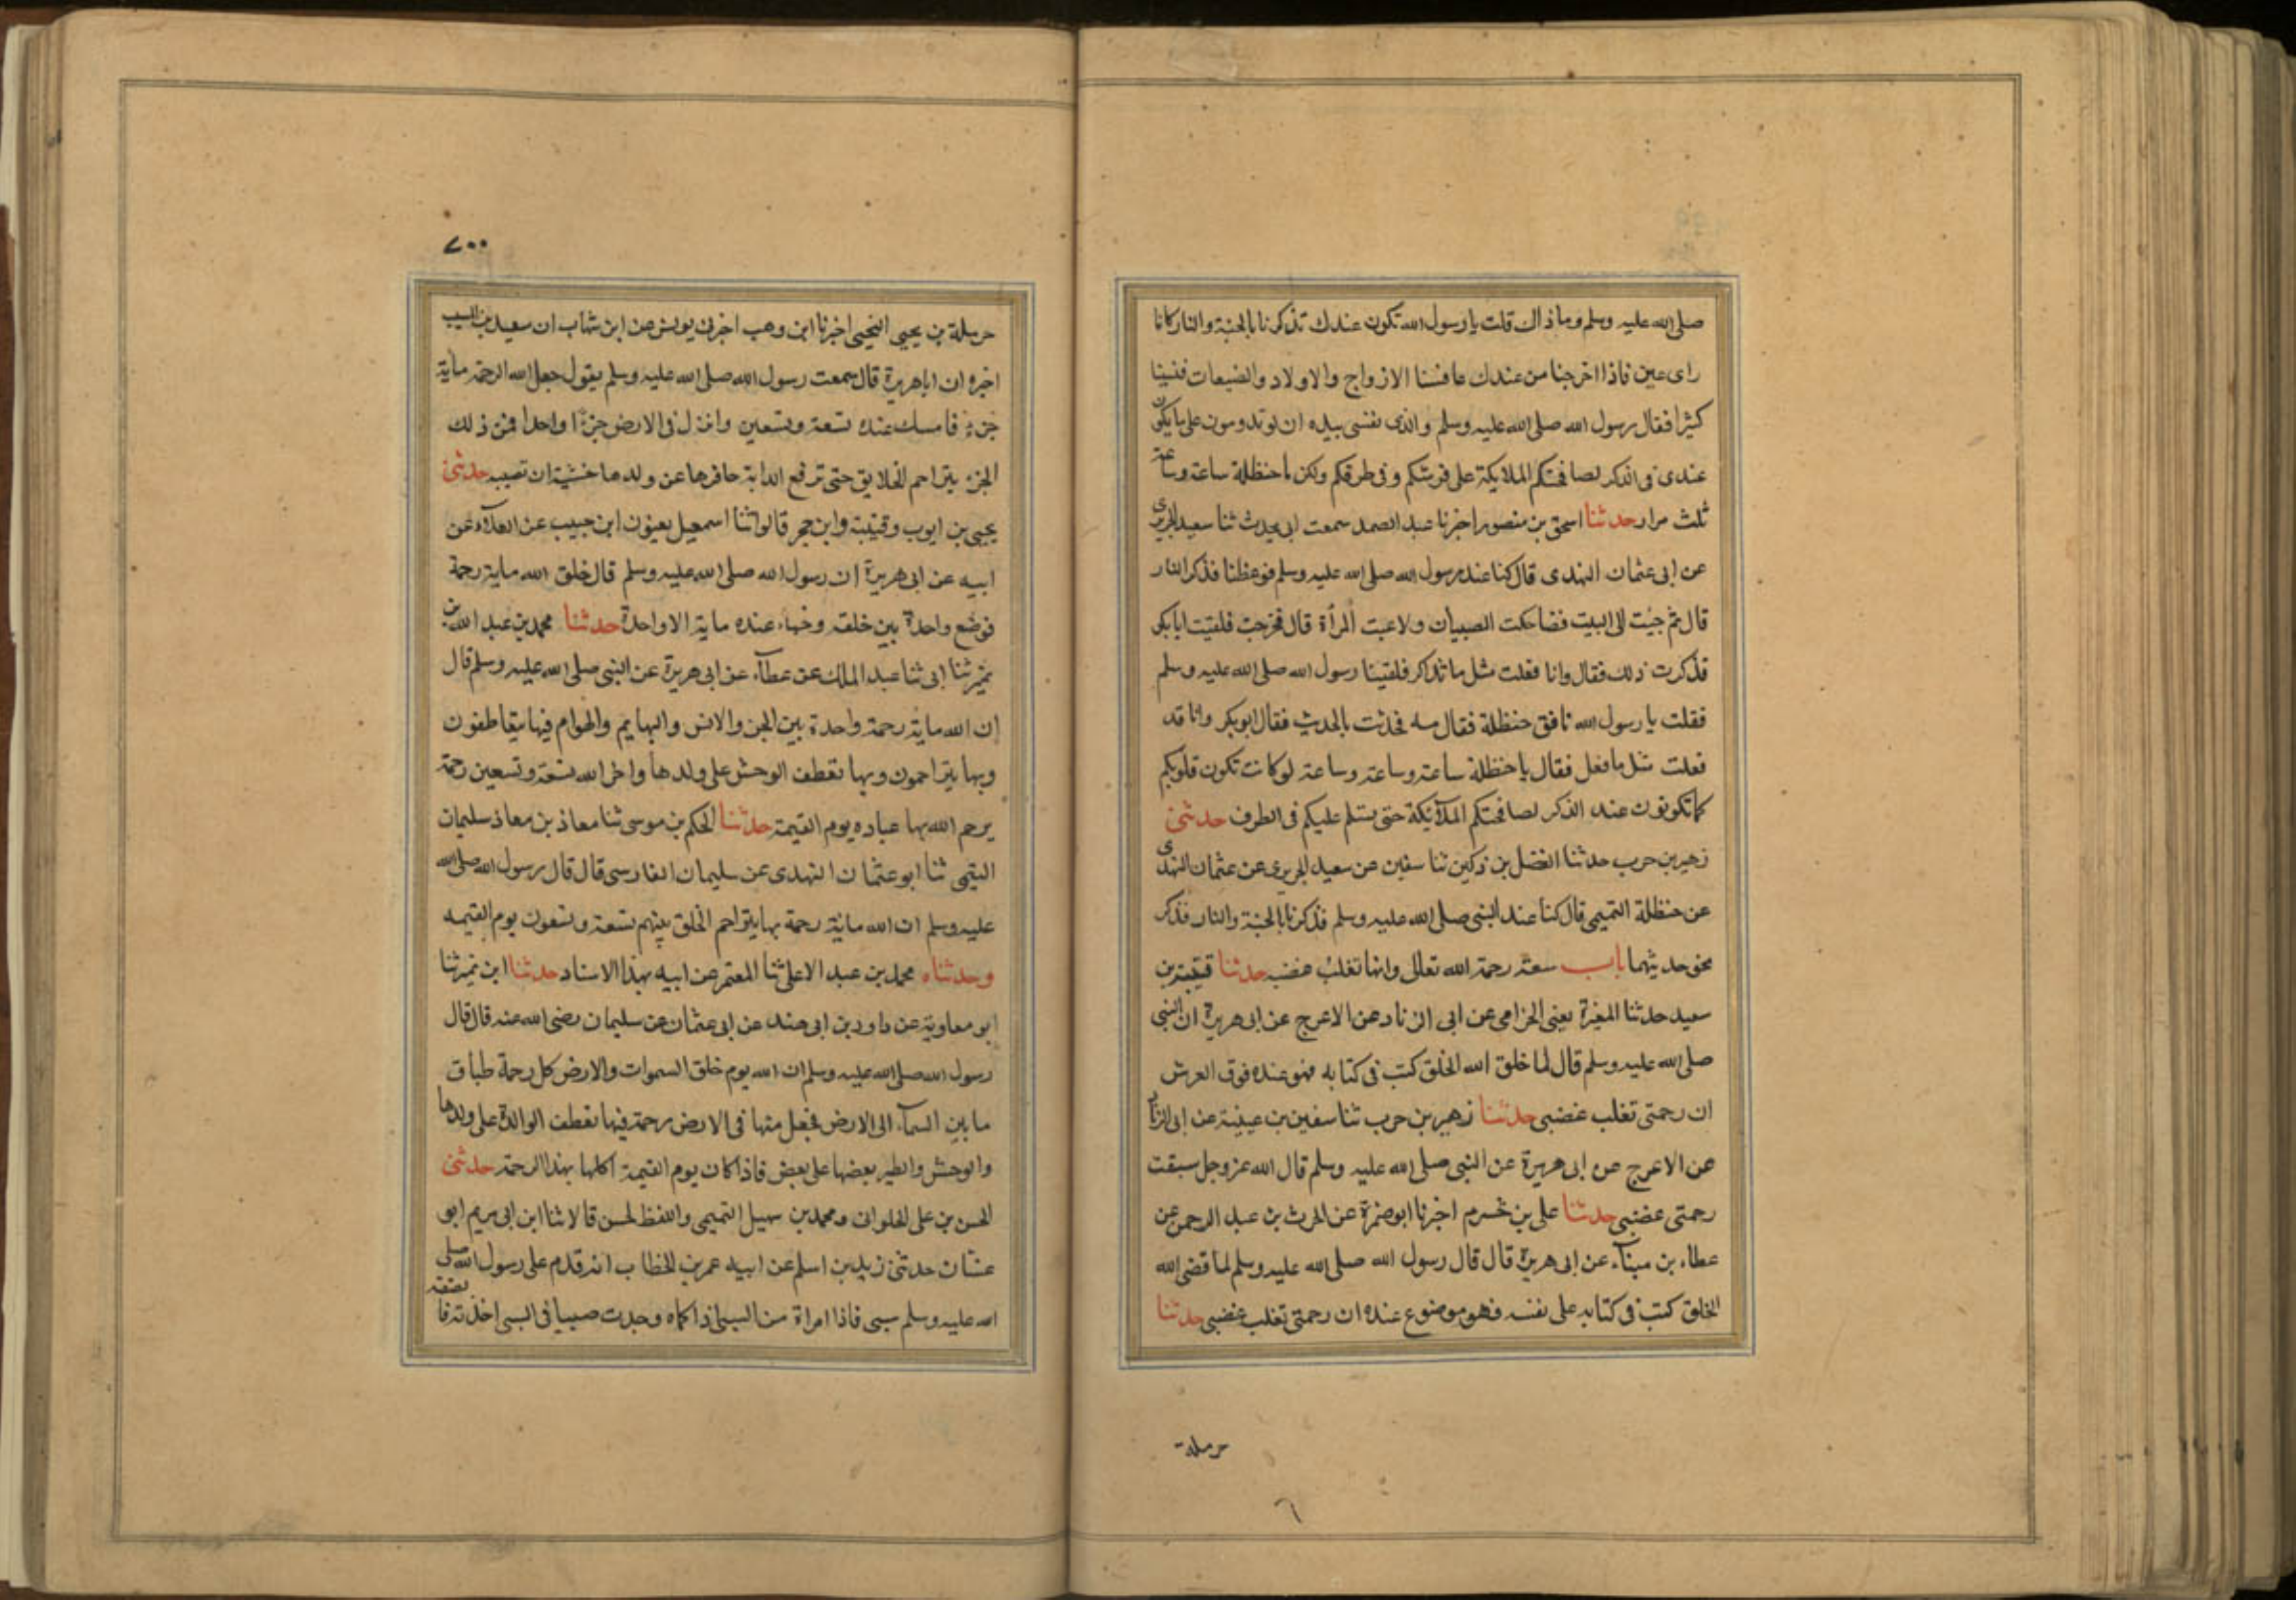 صلى الله عليه وسلم وما ذاك قلت يا رسول الله تكون عندك تذكرنا بالجنة والنار كانا
راى عين فاذا اخرجنا من عندك عافسنا الازواج والاولاد والضيعات فنسينا
كثيرا فقال رسول الله صلى الله عليه وسلم والذى نفسى بيده ان لو تدومون على ما يكون
عندى فى الذكر لصافحتكم الملايكة على فرشكم وفى طرقكم ولكن يا حنظلة ساعة وساعة
ثلث مرار حدثنا اسحق بن منصور اخبرنا عبد الصمد سمعت ابى يحدث ثنا سعيد الجريرى
عن ابى عثمان النهدى قال كنا عند رسول الله صلى الله عليه وسلم فوعظنا فذكر النار
قال ثم جيت الى البيت فضاحكت الصبيان ولاعبت المرأة قال فخرجت فلقيت ابا بكر
فذكرت ذلك فقال وانا فعلت مثل ما تذاكر فلقينا رسول الله صلى الله عليه وسلم
فقلت يا رسول الله نافق حنظلة فقال مه فحدثت بالحديث فقال ابو بكر وانا قد
فعلت مثل ما فعل فقال يا حنظلة ساعة وساعة وساعة لو كانت تكون قلوبكم
كما تكونون عند الذكر لصافحتكم الملآئكة حتى تسلم عليكم فى الطرف حدثنى
زهير بن حرب حدثنا الفضل بن زكين ثنا سفين عن سعيد الجريرى عن عثمان النهدى
عن حنظلة التميمى قال كنا عند النبى صلى الله عليه وسلم فذكرنا بالجنة والنار فذكر
نحو حديثهما باب سعة رحمة الله تعالى وانها تغلب غضبه حدثنا قتيبة بن
سعيد حدثنا المغيرة يعنى الحزامى عن ابى الزناد عن الاعرج عن ابى هريرة ان النبى
صلى الله عليه وسلم قال لما خلق الله الخلق كتب فى كتابه فهو عنده فوق العرش
ان رحمتى تغلب غضبى حدثنا زهير بن حرب ثنا سفين بن عيينة عن ابى الزناد
عن الاعرج عن ابى هريرة عن النبى صلى الله عليه وسلم قال الله عز وجل سبقت
رحمتى غضبى حدثنا على بن خشرم اخبرنا ابو ضمرة عن الحرث بن عبد الرحمن عن
عطاء بن ميناء عن ابى هريرة قال قال رسول الله صلى الله عليه وسلم لما قضى الله
الخلق كتب فى كتابه على نفسه فهو موضوع عنده ان رحمتى تغلب غضبى حدثنا
حرملة
٦
٧٠٠
حرملة بن يحيى التجيبى اخبرنا ابن وهب اخبرنى يونس عن ابن شهاب ان سعيد بن المسيب
اخبره ان ابا هريرة قال سمعت رسول الله صلى الله عليه وسلم يقول جعل الله الرحمة ماية
جزء فامسك عنده تسعة وتسعين وانزل فى الارض جزءا واحدا فمن ذلك
الجزء يتراحم الخلايق حتى ترفع الدابة حافرها عن ولدها خشية ان تصيبه حدثنى
يحيى بن ايوب وقتيبة وابن حجر قالوا ثنا اسمعيل يعنون ابن حبيب عن العلآء عن
ابيه عن ابى هريرة ان رسول الله صلى الله عليه وسلم قال خلق الله ماية رحمة
فوضع واحدة بين خلقه وخباء عنده ماية الا واحدة حدثنا محمد بن عبد الله بن
نمير ثنا ابى ثنا عبد الملك عن عطآء عن ابى هريرة عن النبى صلى الله عليه وسلم قال
ان الله ماية رحمة واحدة بين الجن والانس والبهايم والهوام فيها يتعاطفون
وبها يتراحمون وبها تعطف الوحش على ولدها واخر الله تسعة وتسعين رحمة
يرحم الله بها عباده يوم القيمة حدثنا الحكم بن موسى ثنا معاذ بن معاذ سليمان
التيمى ثنا ابو عثمان النهدى عن سليمان الفارسى قال قال رسول الله صلى الله
عليه وسلم ان الله مائة رحمة بها يتراحم الخلق بينهم تسعة وتسعون يوم القيمه
وحدثناه محمد بن عبد الاعلى ثنا المعتمر عن ابيه بهذا الاسناد حدثنا ابن نمير ثنا
ابو معاوية عن داود بن ابى هند عن ابى عثمان عن سليمان رضى الله عنه قال قال
رسول الله صلى الله عليه وسلم ان الله يوم خلق السموات والارض كل رحمة طباق
ما بين السمآء الى الارض فجعل منها فى الارض رحمة فيها تعطف الوالدة على ولدها
والوحش والطير بعضها على بعض فاذا كان يوم القيمة اكملها بهذا الرحمة حدثنى
الحسن بن على الحلوانى ومحمد بن سهيل التميمى واللفظ لحسن قالا ثنا ابن ابى مريم ابو
عنسان حدثنى زيد بن اسلم عن ابيه عمر بن الخطاب انه قدم على رسول الله صلى
الله عليه وسلم سبى فاذا امراة من السبى اذا كاه وجدت صبيا فى السبى اخذته فا